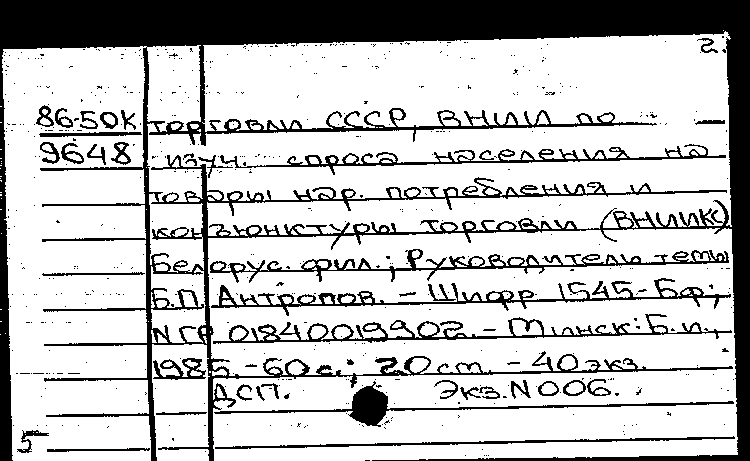 2.
86-50К торговли СССР, ВНИИ по
9648 изуч. спроса населения на
товары нар. потребления и
конъюнктуры торговли (ВНИИКС)
Белорус. фил.; Руководитель темы
Б.П. Антропов. – Шифр 1545-Бф;
NГР 01840019902. – Минск: Б.и.,
1985. – 60 с.; 20 см. – 40 экз.
ДСП. Экз. N 006.
5